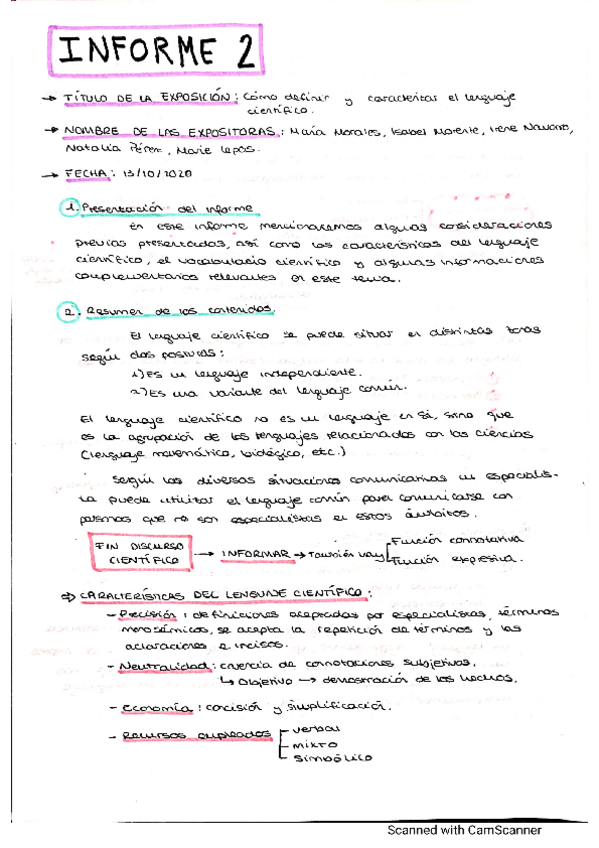 INFORME 2
→ TÍTULO DE LA EXPOSICIÓN: Cómo definir y caracterizar el lenguaje
científico.
→ NOMBRE DE LAS EXPOSITORAS: María Morales, Isabel Morente, Irene Navarro,
Natalia Pérez, Marie
→ FECHA: 13/10/2020
1. Presentación del informe
En este informe mencionaremos algunas consideraciones
previas presentadas, así como las características del lenguaje
científico, el vocabulario científico y algunas informaciones
complementarias relevantes en este tema.
2. Resumen de los contenidos.
El lenguaje científico se puede situar en distintas
según dos posturas:
1) Es un lenguaje independiente.
2) Es una variante del lenguaje común.
El lenguaje científico no es un lenguaje en sí, sino que
es la agrupación de los lenguajes relacionados con las ciencias
(lenguaje matemático, biológico, etc.)
Según las diversas situaciones comunicativas un especialis-
ta puede utilizar el lenguaje común para comunicarse con
personas que no son especialistas en estos ámbitos.
FIN DISCURSO
CIENTÍFICO → INFORMAR → También hay
Función connotativa
Función expresiva.
⇒ CARACTERÍSTICAS DEL LENGUAJE CIENTÍFICO:
- Precisión: definiciones aceptadas por especialistas, términos
monosémicos, se acepta la repetición de términos y las
aclaraciones e incisos.
- Neutralidad: carencia de connotaciones subjetivas.
↳ Objetivo → demostración de los hechos.
- Economía: concisión y simplificación.
- Recursos empleados
verbal
mixto
simbólico
Scanned with CamScanner